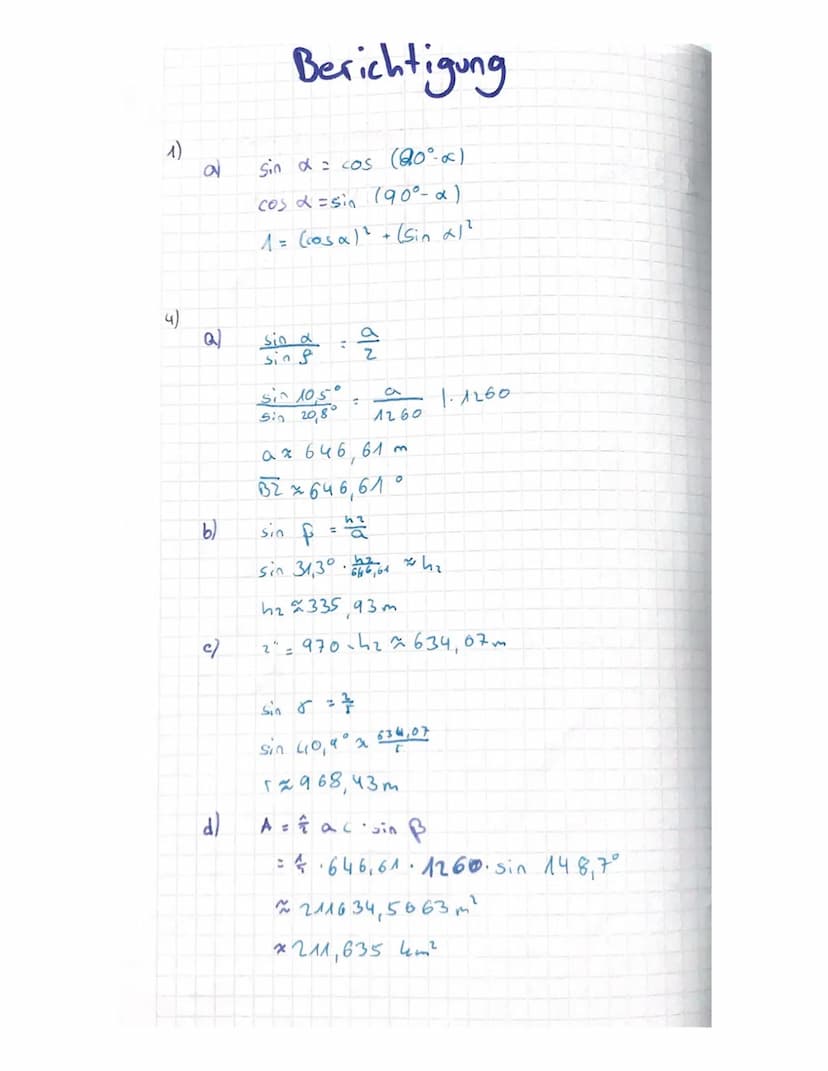 Berichtigung
1)
a) sin α = cos (90°-α)
cos α = sin (90°-α)
1 = (cos α)² + (sin α)²
4)
a) sin α / sin β = a / z
sin 10,5° / sin 20,8° = a / 1260 |· 1260
a ≈ 646,61 m
BZ ≈ 646,61°
b) sin β = hz / a
sin 31,3° · hz / 646,61 ≈ hz
hz ≈ 335,93 m
c) z" = 970 - hz ≈ 634,07 m
sin γ = z / r
sin 40,9° ≈ 634,07 / r
r ≈ 968,43 m
d) A = 1/2 a c · sin β
= 1/2 · 646,61 · 1260 · sin 148,7°
≈ 211634,5063 m²
≈ 211,635 km²